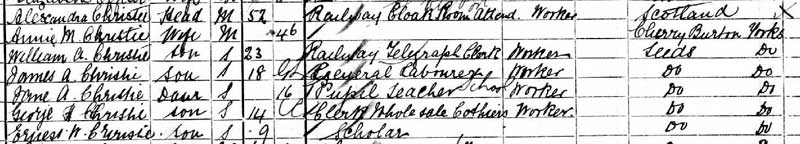 Alexandra Christie Head M 52 Railway Cloak Room Attend. Worker Scotland X
Annie M. Christie Wife M 46 Cherry Burton Yorks
William A. Christie Son S 23 Railway Telegraph Clerk Worker Leeds Do
James A. Christie Son S 18 General Labourer Worker Do Do
Jane A. Christie Daur S 16 Pupil Teacher School Worker Do Do
George Christie Son S 14 Clerk Wholesale Clothiers Worker Do Do
Ernest W. Christie Son S 9 Scholar Do Do